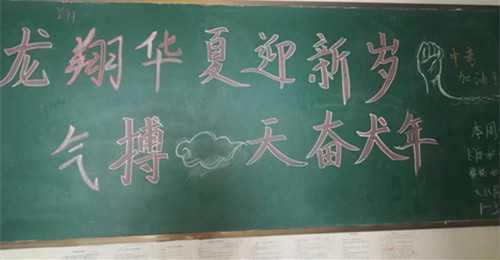 龙翔华夏迎新岁
气搏天奋犬年
中考
加油
本周